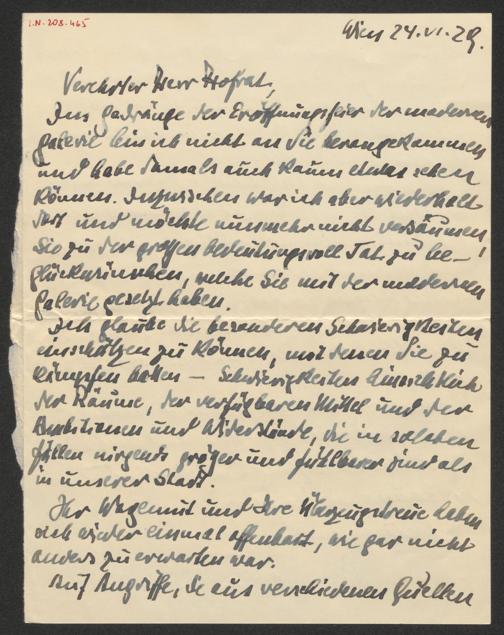 I.N. 208.465
Wien 24.VI.29.
Verehrter Herr Hofrat,
Im Gedränge der Eröffnungsfeier der modernen
Galerie bin ich nicht an Sie herangekommen
und habe damals auch kaum etwas sehen
können. Inzwischen war ich aber wiederholt
dort und möchte nunmehr nicht versäumen,
Sie zu der großen bedeutungsvoll Tat zu be-
glückwünschen, welche Sie mit der modernen
Galerie gesetzt haben.
Ich glaube die besonderen Schwierigkeiten
einschätzen zu können, mit denen Sie zu
kämpfen hatten — Schwierigkeiten hinsichtlich
der Räume, der verfügbaren Mittel und der
Ambitionen und Widerstände, die in solchen
Fällen nirgends größer und fühlbarer sind als
in unserer Stadt.
Ihr Wagemut und Ihre haben
sich wieder einmal offenbart, wie gar nicht
anders zu erwarten war.
Auf Angriffe, die aus verschiedenen Quellen